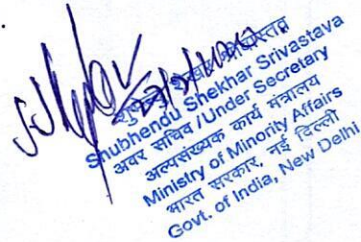 श्रीवास्तव
Shubhendu Shekhar Srivastava
अवर सचिव /Under Secretary
अल्पसंख्यक कार्य मंत्रालय
Ministry of Minority Affairs
भारत सरकार, नई दिल्ली
Govt. of India, New Delhi